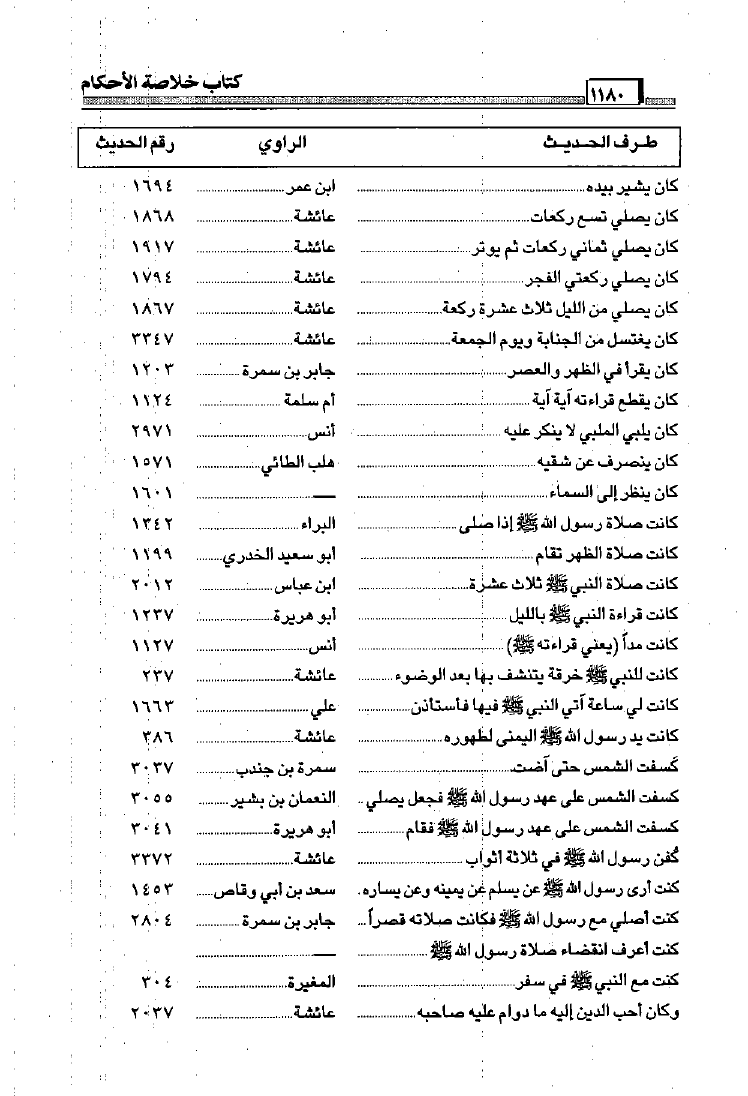 ١١٨٠ كتاب خلاصة الأحكام
طرف الحديث الراوي رقم الحديث
كان يشير بيده ابن عمر ١٦٩٤
كان يصلي تسع ركعات عائشة ١٨٦٨
كان يصلي ثماني ركعات ثم يوتر عائشة ١٩١٧
كان يصلي ركعتي الفجر عائشة ١٧٩٤
كان يصلي من الليل ثلاث عشرة ركعة عائشة ١٨٦٧
كان يغتسل من الجنابة ويوم الجمعة عائشة ٣٣٤٧
كان يقرأ في الظهر والعصر جابر بن سمرة ١٢٠٣
كان يقطع قراءته آية آية أم سلمة ١١٢٤
كان يلبي الملبي لا ينكر عليه أنس ٢٩٧١
كان ينصرف عن شقيه هلب الطائي ١٥٧١
كان ينظر إلى السماء — ١٦٠١
كانت صلاة رسول الله ﷺ إذا صلى البراء ١٣٤٢
كانت صلاة الظهر تقام أبو سعيد الخدري ١١٩٩
كانت صلاة النبي ﷺ ثلاث عشرة ابن عباس ٢٠١٢
كانت قراءة النبي ﷺ بالليل أبو هريرة ١٢٣٧
كانت مداً (يعني قراءته ﷺ) أنس ١١٢٧
كانت للنبي ﷺ خرقة يتنشف بها بعد الوضوء عائشة ٢٣٧
كانت لي ساعة آتي النبي ﷺ فيها فأستأذن علي ١٦٦٣
كانت يد رسول الله ﷺ اليمنى لطهوره عائشة ٣٨٦
كسفت الشمس حتى آضت سمرة بن جندب ٣٠٣٧
كسفت الشمس على عهد رسول الله ﷺ فجعل يصلي النعمان بن بشير ٣٠٥٥
كسفت الشمس على عهد رسول الله ﷺ فقام أبو هريرة ٣٠٤١
كُفن رسول الله ﷺ في ثلاثة أثواب عائشة ٣٣٧٢
كنت أرى رسول الله ﷺ عن يسلم عن يمينه وعن يساره سعد بن أبي وقاص ١٤٥٣
كنت أصلي مع رسول الله ﷺ فكانت صلاته قصراً جابر بن سمرة ٢٨٠٤
كنت أعرف انقضاء صلاة رسول الله ﷺ —
كنت مع النبي ﷺ في سفر المغيرة ٣٠٤
وكان أحب الدين إليه ما دوام عليه صاحبه عائشة ٢٠٣٧